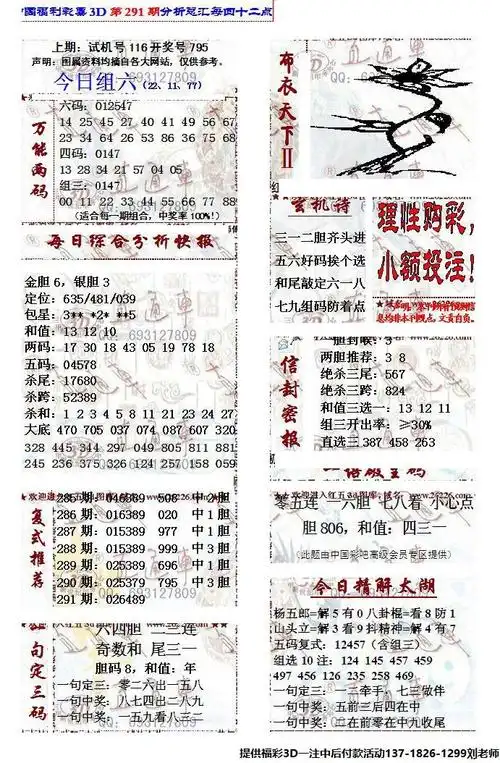 中国福利彩票3D 第 291 期分析总汇每四十二点
上期：试机号 116 开奖号 795
声明：图属资料均摘自各大网站，仅供参考。
今日组六 (22、11、77)
万能两码
六码：012547
14 25 45 27 40 41 49 56 67
23 34 64 26 53 86 36 75 68
四码：0147
13 28 34 21 57 04 05
组三：0147
00 11 22 33 44 55 66 77 88
(适合每一期组合，中奖率 100%!)
每日综合分析快报
金胆 6，银胆 3
定位：635/481/039
包星：3** *2* **5
和值：13 12 10
两码：17 30 18 43 05 19 78 18
五码：04578
杀尾：17680
杀跨：52389
杀和：1 2 3 4 5 8 11 21 23 24 27
大底 470 705 037 074 087 607 320
328 445 344 297 049 805 811 881
245 236 375 326 124 257 158 059
复式推荐
285 期：046389 508 中 2 胆
286 期：016389 020 中 1 胆
287 期：015389 977 中 1 胆
288 期：015389 999 中 3 胆
289 期：025389 696 中 1 胆
290 期：025379 795 中 3 胆
291 期：026489
一句定三码
六四胆 二三连
奇数和 尾三一
胆码 8，和值：年
一句定三：零二六出一五八
一句中奖：八七四出二八九
一句中奖：一五九看八三二
布衣天下Ⅱ
玄机诗
三一二胆齐头进
五六好码挨个选
和尾敲定六一八
七九组码防着点
理性购彩，
小额投注！
信封密报
一胆封喉：3
两胆推荐：3 8
绝杀三尾：567
绝杀三跨：824
和值三选一：13 12 11
组三开出率：≥30%
直选三 387 458 263
零五连 一六胆 七八看 小心点
胆 806，和值：四三一
(此题由中国彩吧高级会员专区提供)
今日精解太湖
杨五郎=解 5 有 0 八卦棍=看 8 防 1
山头立=解 3 看 9 抖精神=解 4 有 7
五码复式：12457（含组三）
组选 10 注：124 145 457 459
497 456 126 235 258 469
一句定三：一三牵手，七三做伴
一句中奖：五前三后四在中
一句中奖：二在前零在中九收尾
提供福彩3D一注中后付款活动137-1826-1299刘老师